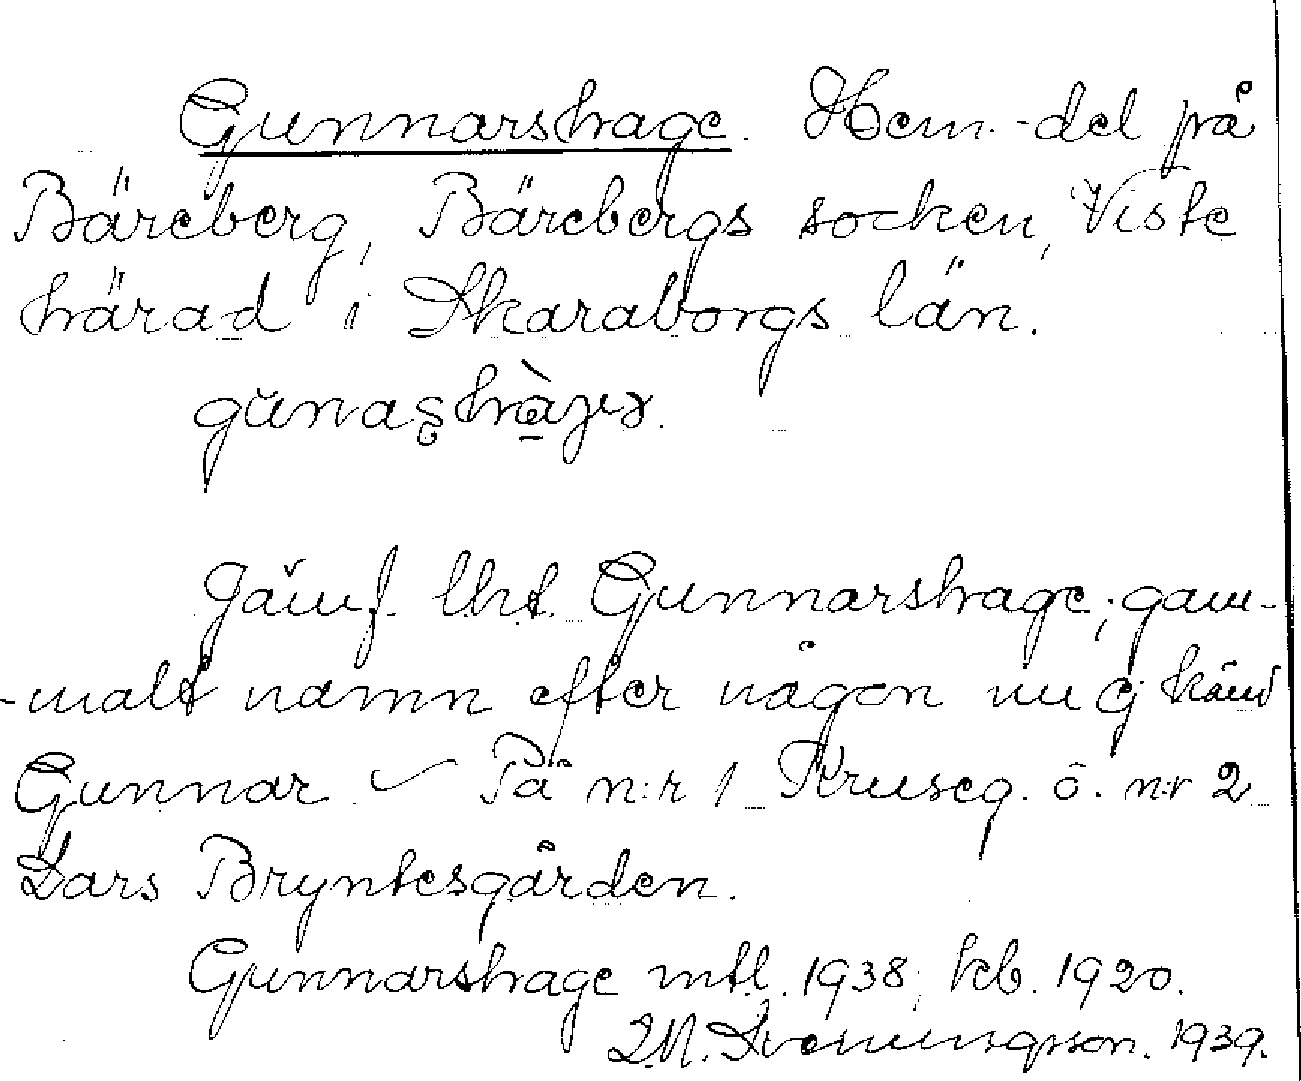 Gunnarshage. Hem.-del på
Bäreberg, Bärebergs socken, Viste
härad i Skaraborgs län.
Jämf. lht. Gunnarshage; gam-
-malt namn efter någon nu ej känd
Gunnar. – På n:r 1 Kruseg. o. n:r 2
Lars Bryntesgården.
Gunnarshage mtl. 1938; kb. 1920.
Sveningsson. 1939.